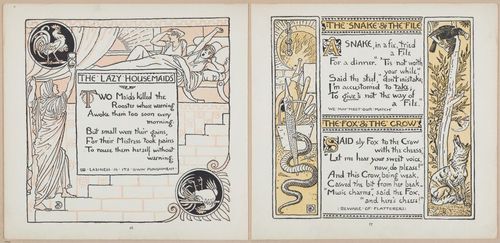 THE LAZY HOUSEMAIDS
TWO Maids killed the
Rooster whose warning
Awoke them too soon every
morning:
But small were their gains,
For their Mistress took pains
To rouse them herself without
warning.
LAZINESS IS ITS OWN PUNISHMENT
THE SNAKE & THE FILE
A SNAKE, in a fix, tried
a File
For a dinner. "'Tis not worth
your while,"
Said the steel, "don't mistake;
I'm accustomed to take,
To give's not the way of
a File."
WE MAY MEET OUR MATCH
THE FOX & THE CROW
SAID sly Fox to the Crow
with the cheese,
"Let me hear your sweet voice,
now, do please!"
And this Crow, being weak,
Cawed the bit from her beak—
"Music charms", said the Fox,
"and here's cheese!"
BEWARE OF FLATTERERS